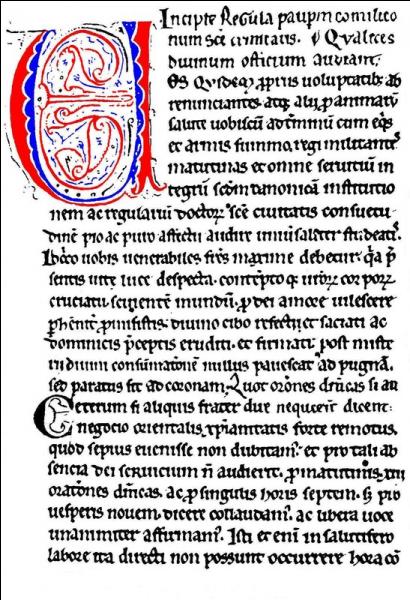 Incipit Regula paup̄m comilito
num sc̄e t̄nitatis. Qualit̄ es
diuinum officium audiant.
Os Quidem ꝓpriis voluptatib; ab
renunciantes atq; alii ꝓ animarū
salute uobiscū ad t̄minū cum eq̄s
et armis summo regi militantes
matutinas et omne seruitiū in
tegrū scdm canonicā institutio
nem ac regulariū doctoꝝ sc̄e ciuitatis consuetu
dinē pio ac puro affectu audire uniuersalit̄ studeatis.
Idcirco uobis uenerabiles fr̄es maxime debetur. q̄a p̄
sentis uite luce despecta. contēptoq;
cruciatu. mundū. ꝓ dei amore uilescere
ꝓ. diuino cibo refecti et saciati ac
dominicis p̄ceptis eruditi. et firmati post miste
rii diuini consumationē nullus pauescat ad pugnā.
sed paratus sit ad coronam. Quot or̄ones dn̄icas si au
Ceterum si aliquis frater due nequierit dicent.
negocio orientalis xp̄ianitatis forte remotus.
quod sepius euenisse non dubitam᷒. et pro tali ab
sencia dei seruicium n̄ audierit. ꝓ matutinis. xiii
orationes dn̄icas. ac ꝓ singulis horis septem. Sꝫ pro
uesperis nouem. dicere collaudam᷒. ac libera uoce
unanimiter affirmam᷒. Isti et enī in salutifero
labore ita directi non possunt occurrere hora cō